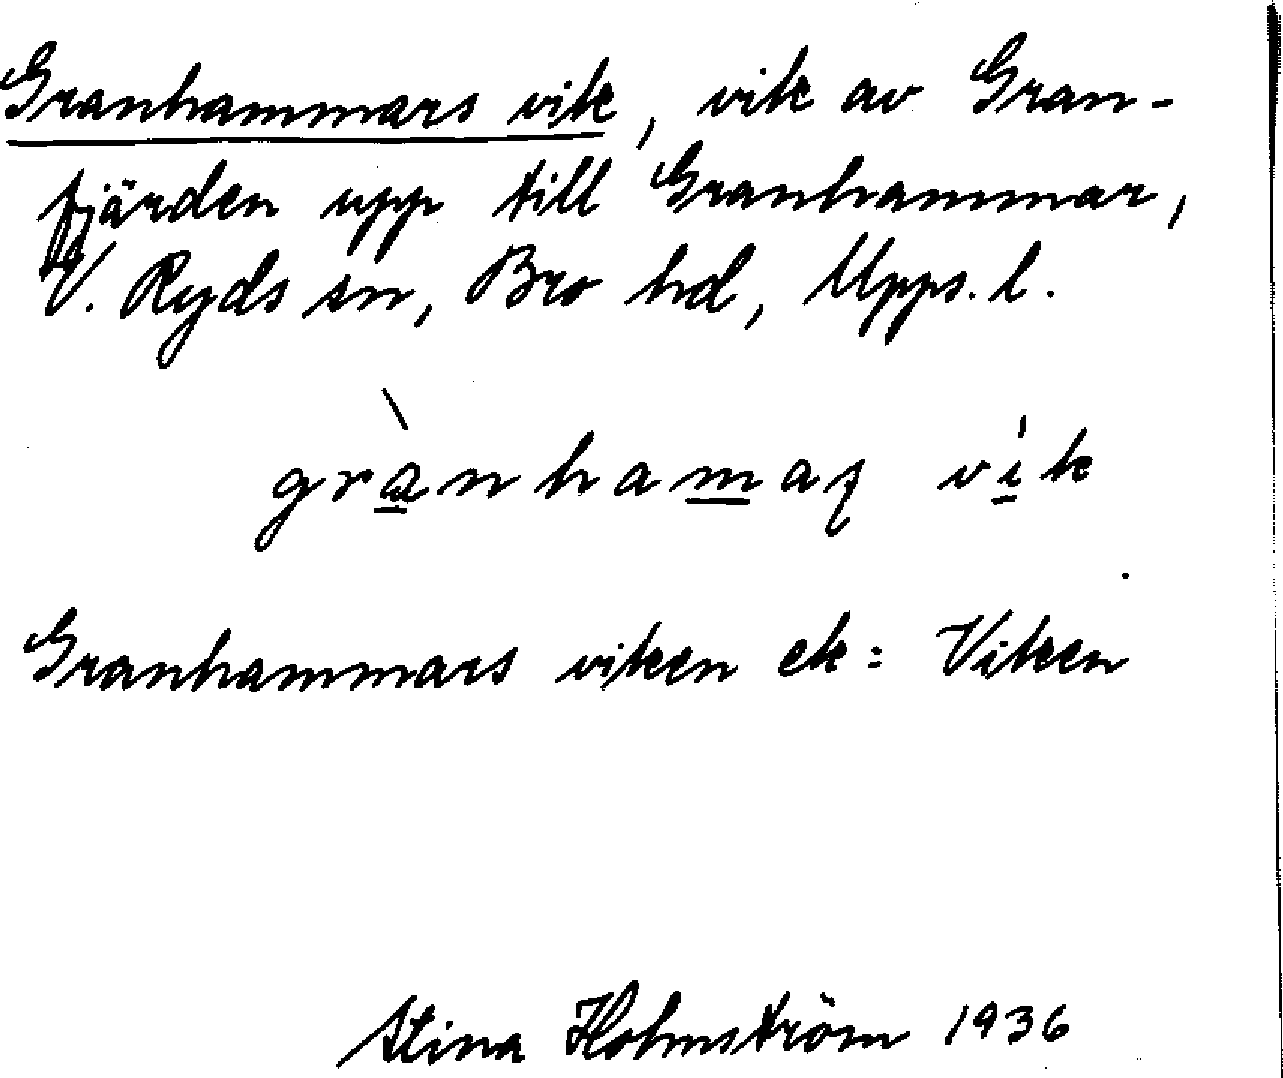 Granhammars vik, vik av Gran-
fjärden upp till Granhammar,
V. Ryds sn, Bro hd, Upps. l.
grànhamaʂ vík
Granhammars viken ek: Viken
Stina Holmström 1936